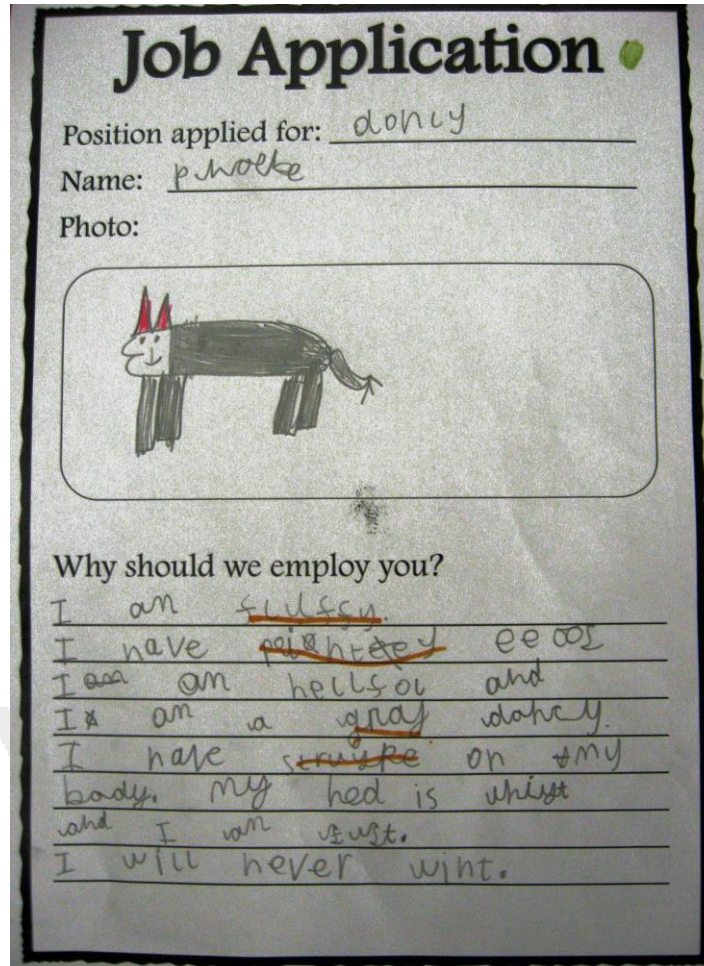 Job Application
Position applied for: doncy
Name: phoebe
Photo:
Why should we employ you?
I an fluffy.
I have eeos
I am an hellfol and
I an a gray doncy.
I have on my
body. my hed is whist
and I an
I will never wint.